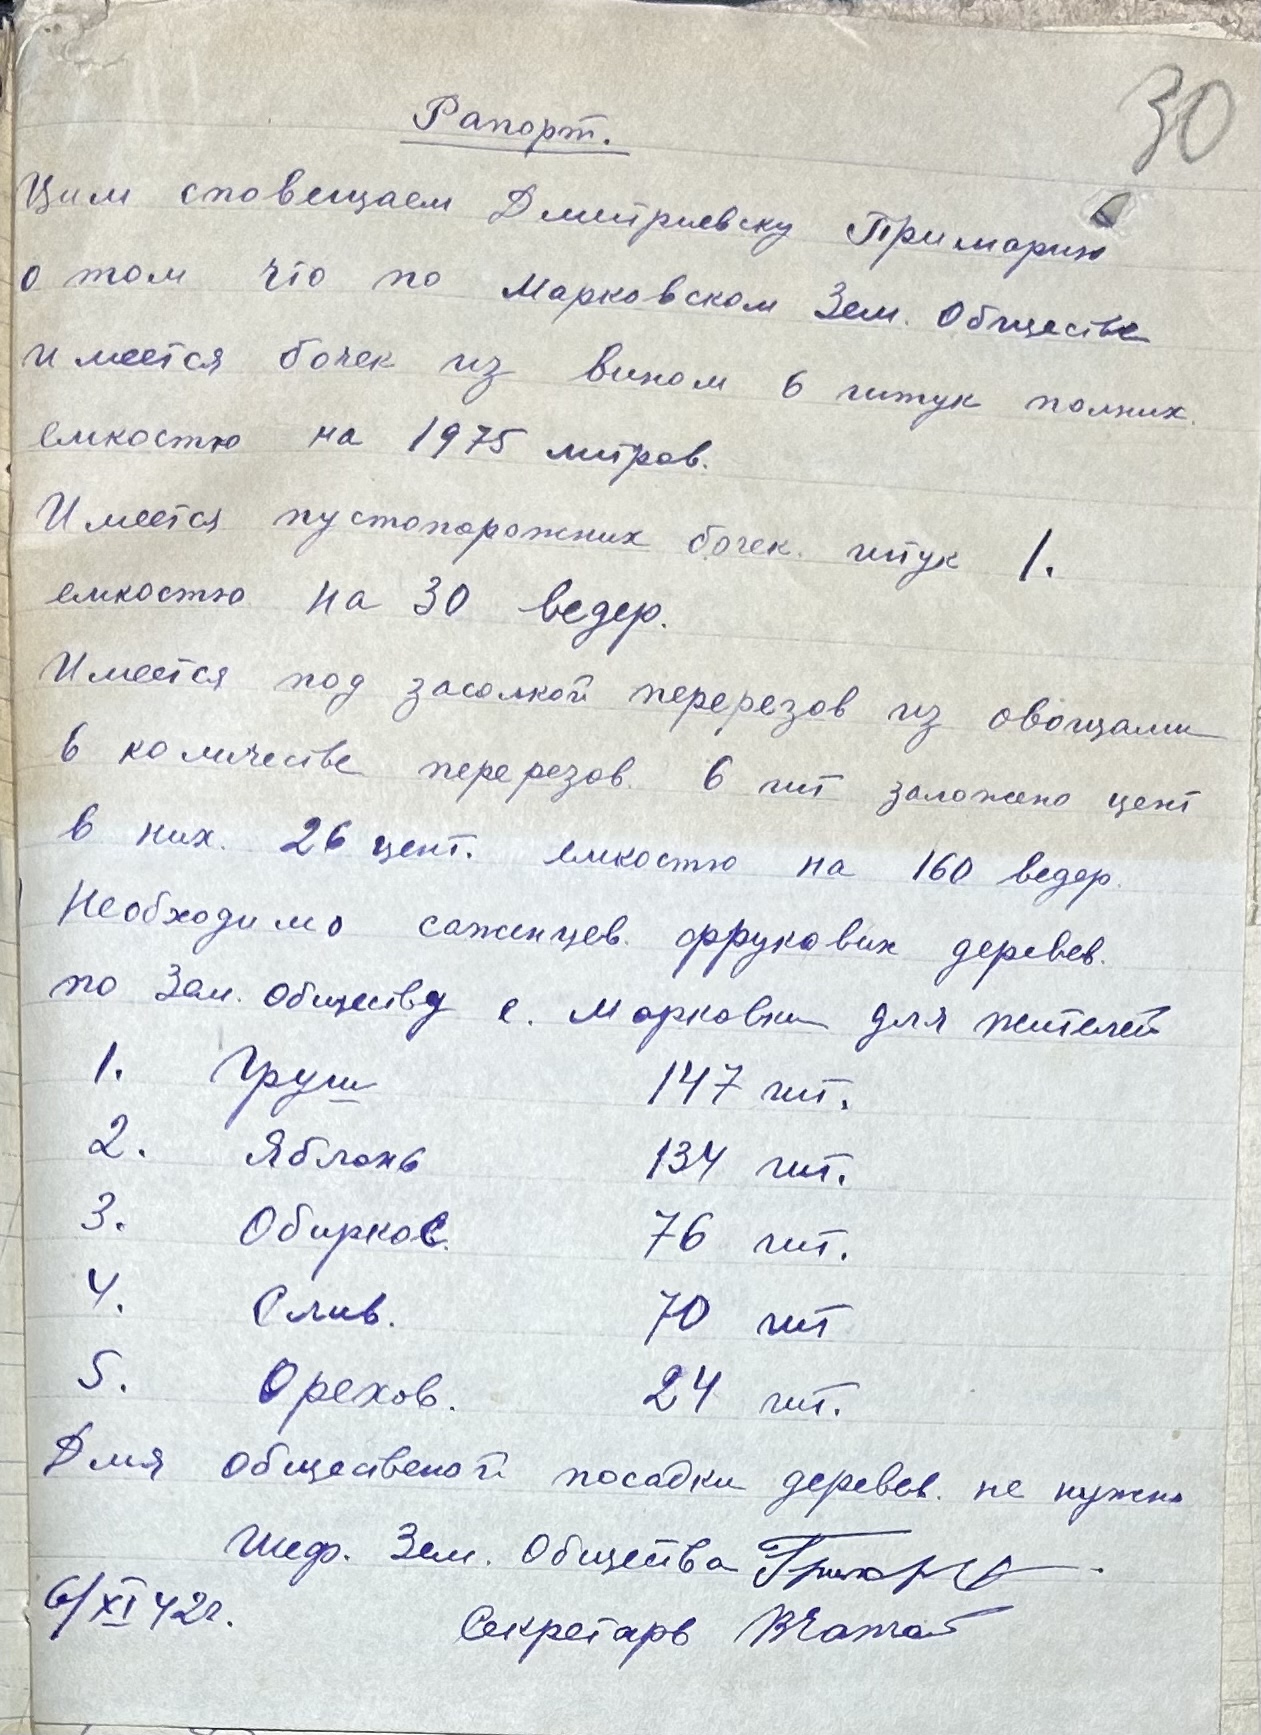 30
Рапорт.
Цим сповещаем Дмитриевску Примарию
о том что по Марковском Зем. Обществе
имеется бочек из вином 6 штук полних.
емкостю на 1975 литров.
Имеется пустопорожних бочек. штук 1.
емкостю на 30 ведер.
Имеется под засолкой перерезов из овощами
в количестве перерезов. 6 шт заложено цент
в них. 26 цент. емкостю на 160 ведер.
Необходимо саженцев. фрукових деревев.
по Зем. обществу с. Марковки для жителей
1. Груш 147 шт.
2. Яблонь 134 шт.
3. Обирков. 76 шт.
4. Слив. 70 шт
5. Орехов. 24 шт.
Для общественой посадки деревев. не нужно
Шеф. Зем. Общества
6/XI 42г.
Секретарь